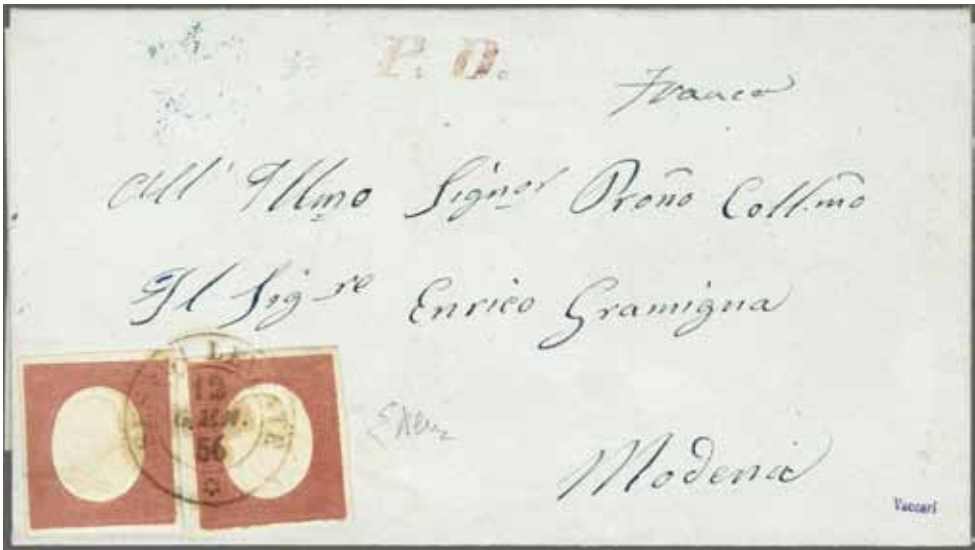 P. D.
Franco
All' Illmo Signor Proño Coll.mo
Il Sig.re Enrico Gramigna
12
GEN.
56
Modena
Vaccari